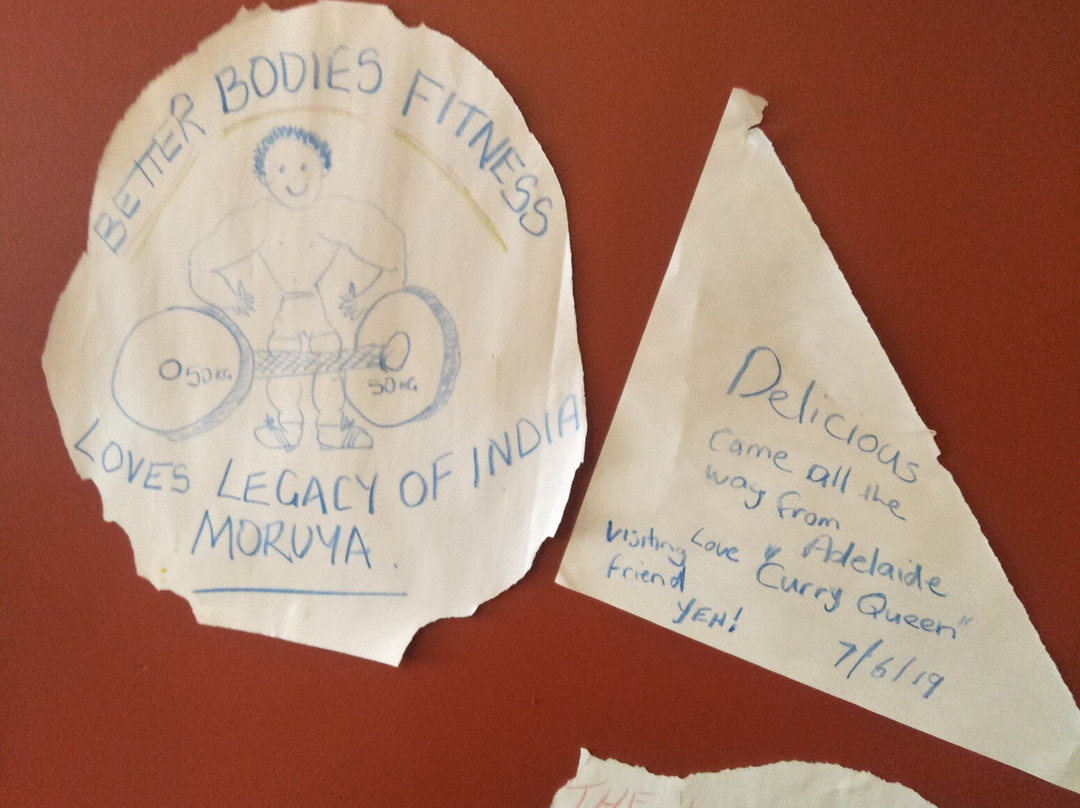 BETTER BODIES FITNESS
50KG
50KG
LOVES LEGACY OF INDIA
MORUYA.
Delicious
Came all the
way from
Adelaide
Love "Curry Queen"
Visiting
friend
YEH!
7/6/19
THE